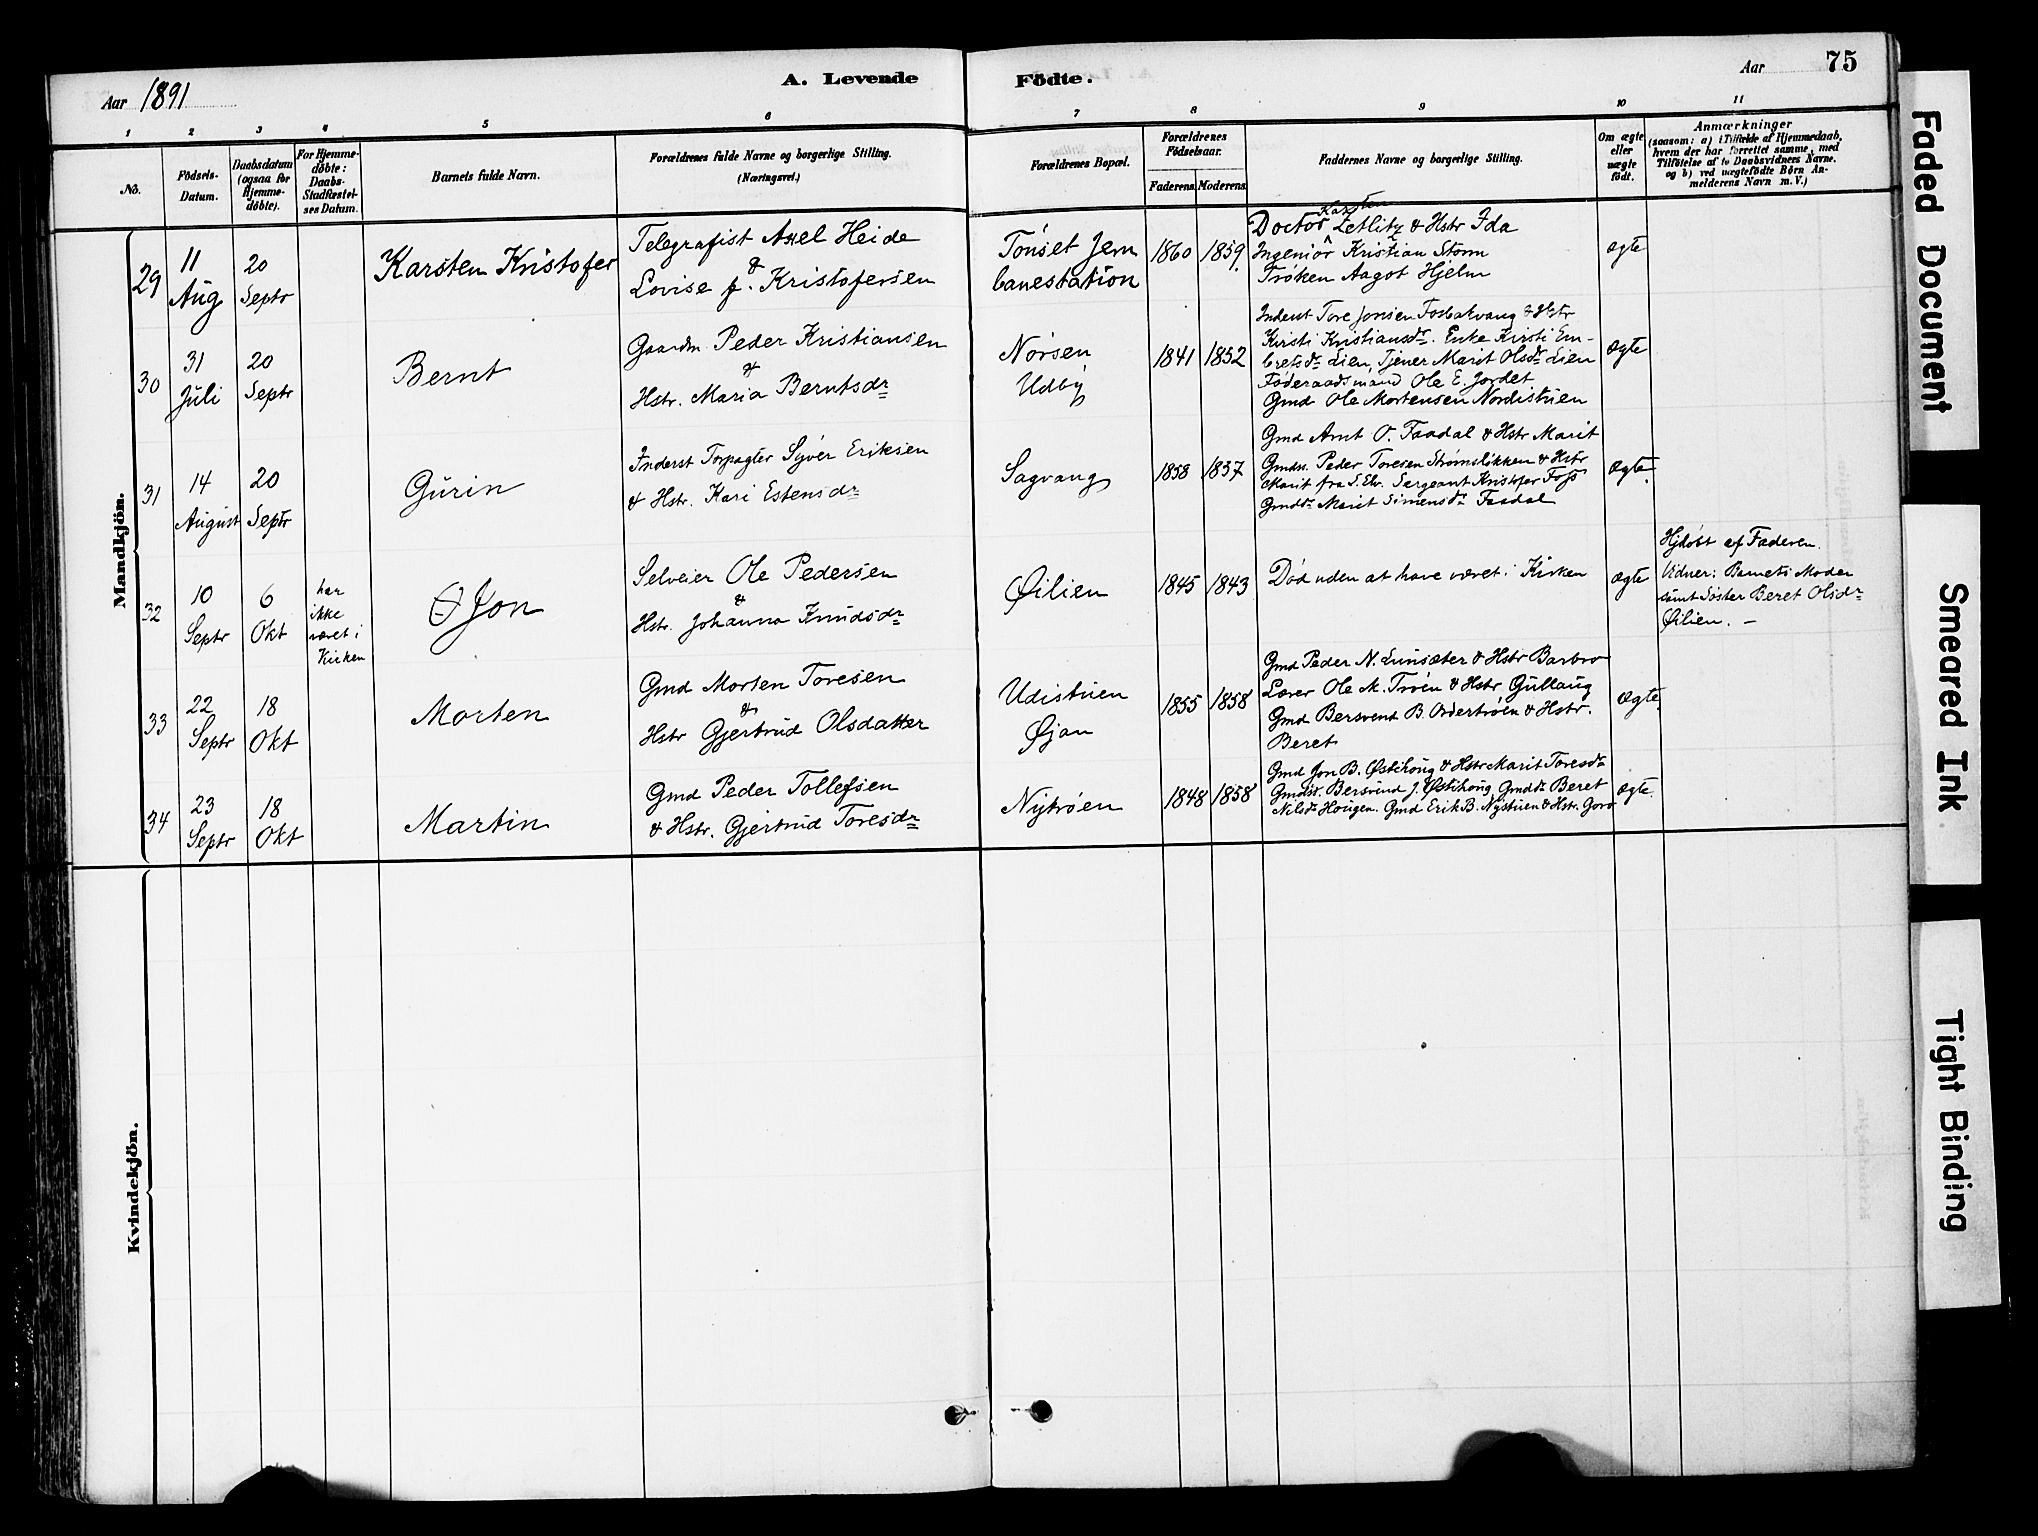 Aar 1891
A. Levende Födte.
Aar 75
1 2 3 4 5 6 7 8 9 10 11
No.
Födsels-
Datum.
Daabsdatum
(ogsaa for
Hjemme-
döbte).
For Hjemme-
döbte:
Daabs-
Stadfæstel-
ses Datum.
Barnets fulde Navn.
Forældrenes fulde Navne og borgerlige Stilling.
(Næringsvei.)
Forældrenes Bopæl.
Forældrenes
Födselsaar.
Faderens.
Moderens.
Faddernes Navne og borgerlige Stilling.
Om ægte
eller
uægte
födt.
Anmærkninger
(saasom: a) i Tilfælde af Hjemmedaab,
hvem der har forrettet samme, med
Tilföielse af to Daabsvidners Navne.
og b) ved uægtefödte Börn An-
melderens Navn m. V.)
Mandkjön.
29
11
Aug
20
Septr
Karsten Kristofer
Telegrafist Axel Heide
&
Lovise f. Kristofersen
Tönset Jern
banestation
1860
1859.
Karsten
Doctor Zetlitz & Hstr Ida
Ingeniör Kristian Storm
Fröken Aagot Hjelm
ægte
30
31
Juli
20
Septr
Bernt
Gaardm. Peder Kristiansen
&
Hstr. Maria Berntsdr
Nörsen
Udby
1841
1852
Inderst Tore Jonsen Fosbakvang & Hstr
Kirsti Kristiansdr. Enke Kirsti Em-
bretsdr Lien, Tjener Marit Olsdr Lien
Föderaadsmand Ole E. Jordet
Gmd Ole Mortensen Nordistuen
ægte
31
14
August
20
Septr
Gurin
Inderst Syver Eriksen
& Hstr. Kari Estensdr
Sagvang
1858
1857
Gmd Arnt O. Faadal & Hstr Marit
Gmdss. Peder Toresen Strömslikken & Hstr
Marit fra S. Elv. Sergeant Kristofer Foss
Gmddr Marit Simensdr Faadal
ægte.
32
10
Septr
6
Okt
har
ikke
været i
Kirken
Jon
Selveier Ole Pedersen
&
Hstr. Johanna Knudsdr
Øilien
1845
1843
Död uden at have været i Kirken
ægte
Hjdöbt af Faderen.
Vidner: Barnets Moder
samt Söster Beret Olsdr
Øilien. —
33
22
Septr
18
Okt
Morten
Gmd Morten Toresen
&
Hstr Gjertrud Olsdatter
Udistuen
Øian
1855
1858
Gmd Peder N. Lunsæter & Hstr Barbro
Lærer Ole M. Tröen & Hstr Gullaug
Gmd Bersvend B. & Hstr.
Beret
Ægte.
34
23
Septr
18
Okt
Martin
Gmd Peder Tollefsen
& Hstr. Gjertrud Toresdr
Nytröen
1848
1858
Gmd Jon B. Østihoug & Hstr Marit Toresdr
Gmdss. Bersvend J. Østihoug, Gmddr Beret
Nilsdr Hougen. Gmd Erik B. Nystuen & Hstr. Goro
ægte.
Kvindekjön.
Faded Document
Smeared Ink
Tight Binding